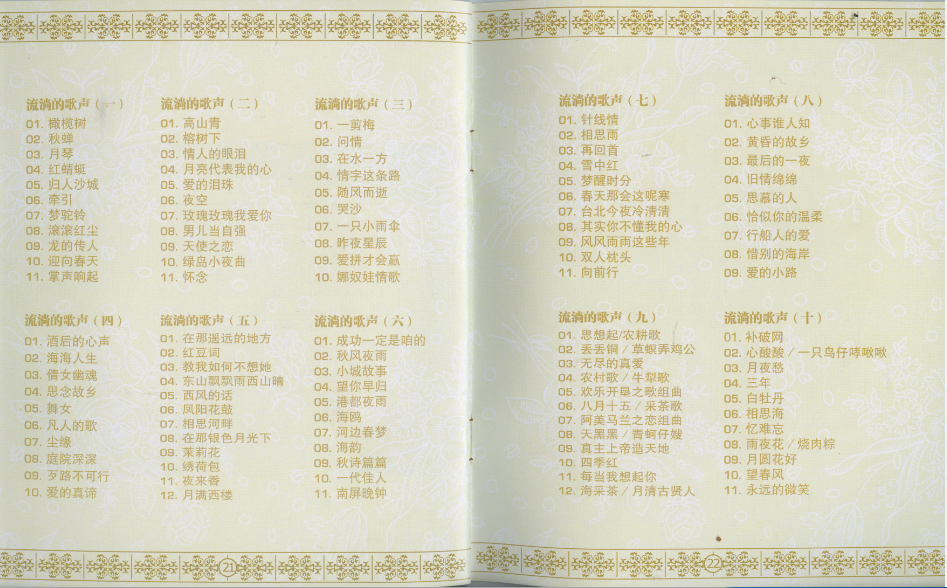 流淌的歌声（一）
01. 橄榄树
02. 秋蝉
03. 月琴
04. 红蜻蜓
05. 归人沙城
06. 牵引
07. 梦驼铃
08. 滚滚红尘
09. 龙的传人
10. 迎向春天
11. 掌声响起
流淌的歌声（二）
01. 高山青
02. 榕树下
03. 情人的眼泪
04. 月亮代表我的心
05. 爱的泪珠
06. 夜空
07. 玫瑰玫瑰我爱你
08. 男儿当自强
09. 天使之恋
10. 绿岛小夜曲
11. 怀念
流淌的歌声（三）
01. 一剪梅
02. 问情
03. 在水一方
04. 情字这条路
05. 随风而逝
06. 哭沙
07. 一只小雨伞
08. 昨夜星辰
09. 爱拼才会赢
10. 娜奴娃情歌
流淌的歌声（四）
01. 酒后的心声
02. 海海人生
03. 倩女幽魂
04. 思念故乡
05. 舞女
06. 凡人的歌
07. 尘缘
08. 庭院深深
09. 歹路不可行
10. 爱的真谛
流淌的歌声（五）
01. 在那遥远的地方
02. 红豆词
03. 教我如何不想她
04. 东山飘飘雨西山晴
05. 西风的话
06. 凤阳花鼓
07. 相思河畔
08. 在那银色月光下
09. 茉莉花
10. 绣荷包
11. 夜来香
12. 月满西楼
流淌的歌声（六）
01. 成功一定是咱的
02. 秋风夜雨
03. 小城故事
04. 望你早归
05. 港都夜雨
06. 海鸥
07. 河边春梦
08. 海韵
09. 秋诗篇篇
10. 一代佳人
11. 南屏晚钟
21
流淌的歌声（七）
01. 针线情
02. 相思雨
03. 再回首
04. 雪中红
05. 梦醒时分
06. 春天那会这呢寒
07. 台北今夜冷清清
08. 其实你不懂我的心
09. 风风雨雨这些年
10. 双人枕头
11. 向前行
流淌的歌声（八）
01. 心事谁人知
02. 黄昏的故乡
03. 最后的一夜
04. 旧情绵绵
05. 思慕的人
06. 恰似你的温柔
07. 行船人的爱
08. 惜别的海岸
09. 爱的小路
流淌的歌声（九）
01. 思想起/农耕歌
02. 丢丢铜／草螟弄鸡公
03. 无尽的真爱
04. 农村歌／牛犁歌
05. 欢乐开垦之歌组曲
06. 八月十五／采茶歌
07. 阿美马兰之恋组曲
08. 天黑黑／青蚵仔嫂
09. 真主上帝造天地
10. 四季红
11. 每当我想起你
12. 海采茶／月清古贤人
流淌的歌声（十）
01. 补破网
02. 心酸酸／一只鸟仔哮啾啾
03. 月夜愁
04. 三年
05. 白牡丹
06. 相思海
07. 忆难忘
08. 雨夜花／烧肉粽
09. 月圆花好
10. 望春风
11. 永远的微笑
22